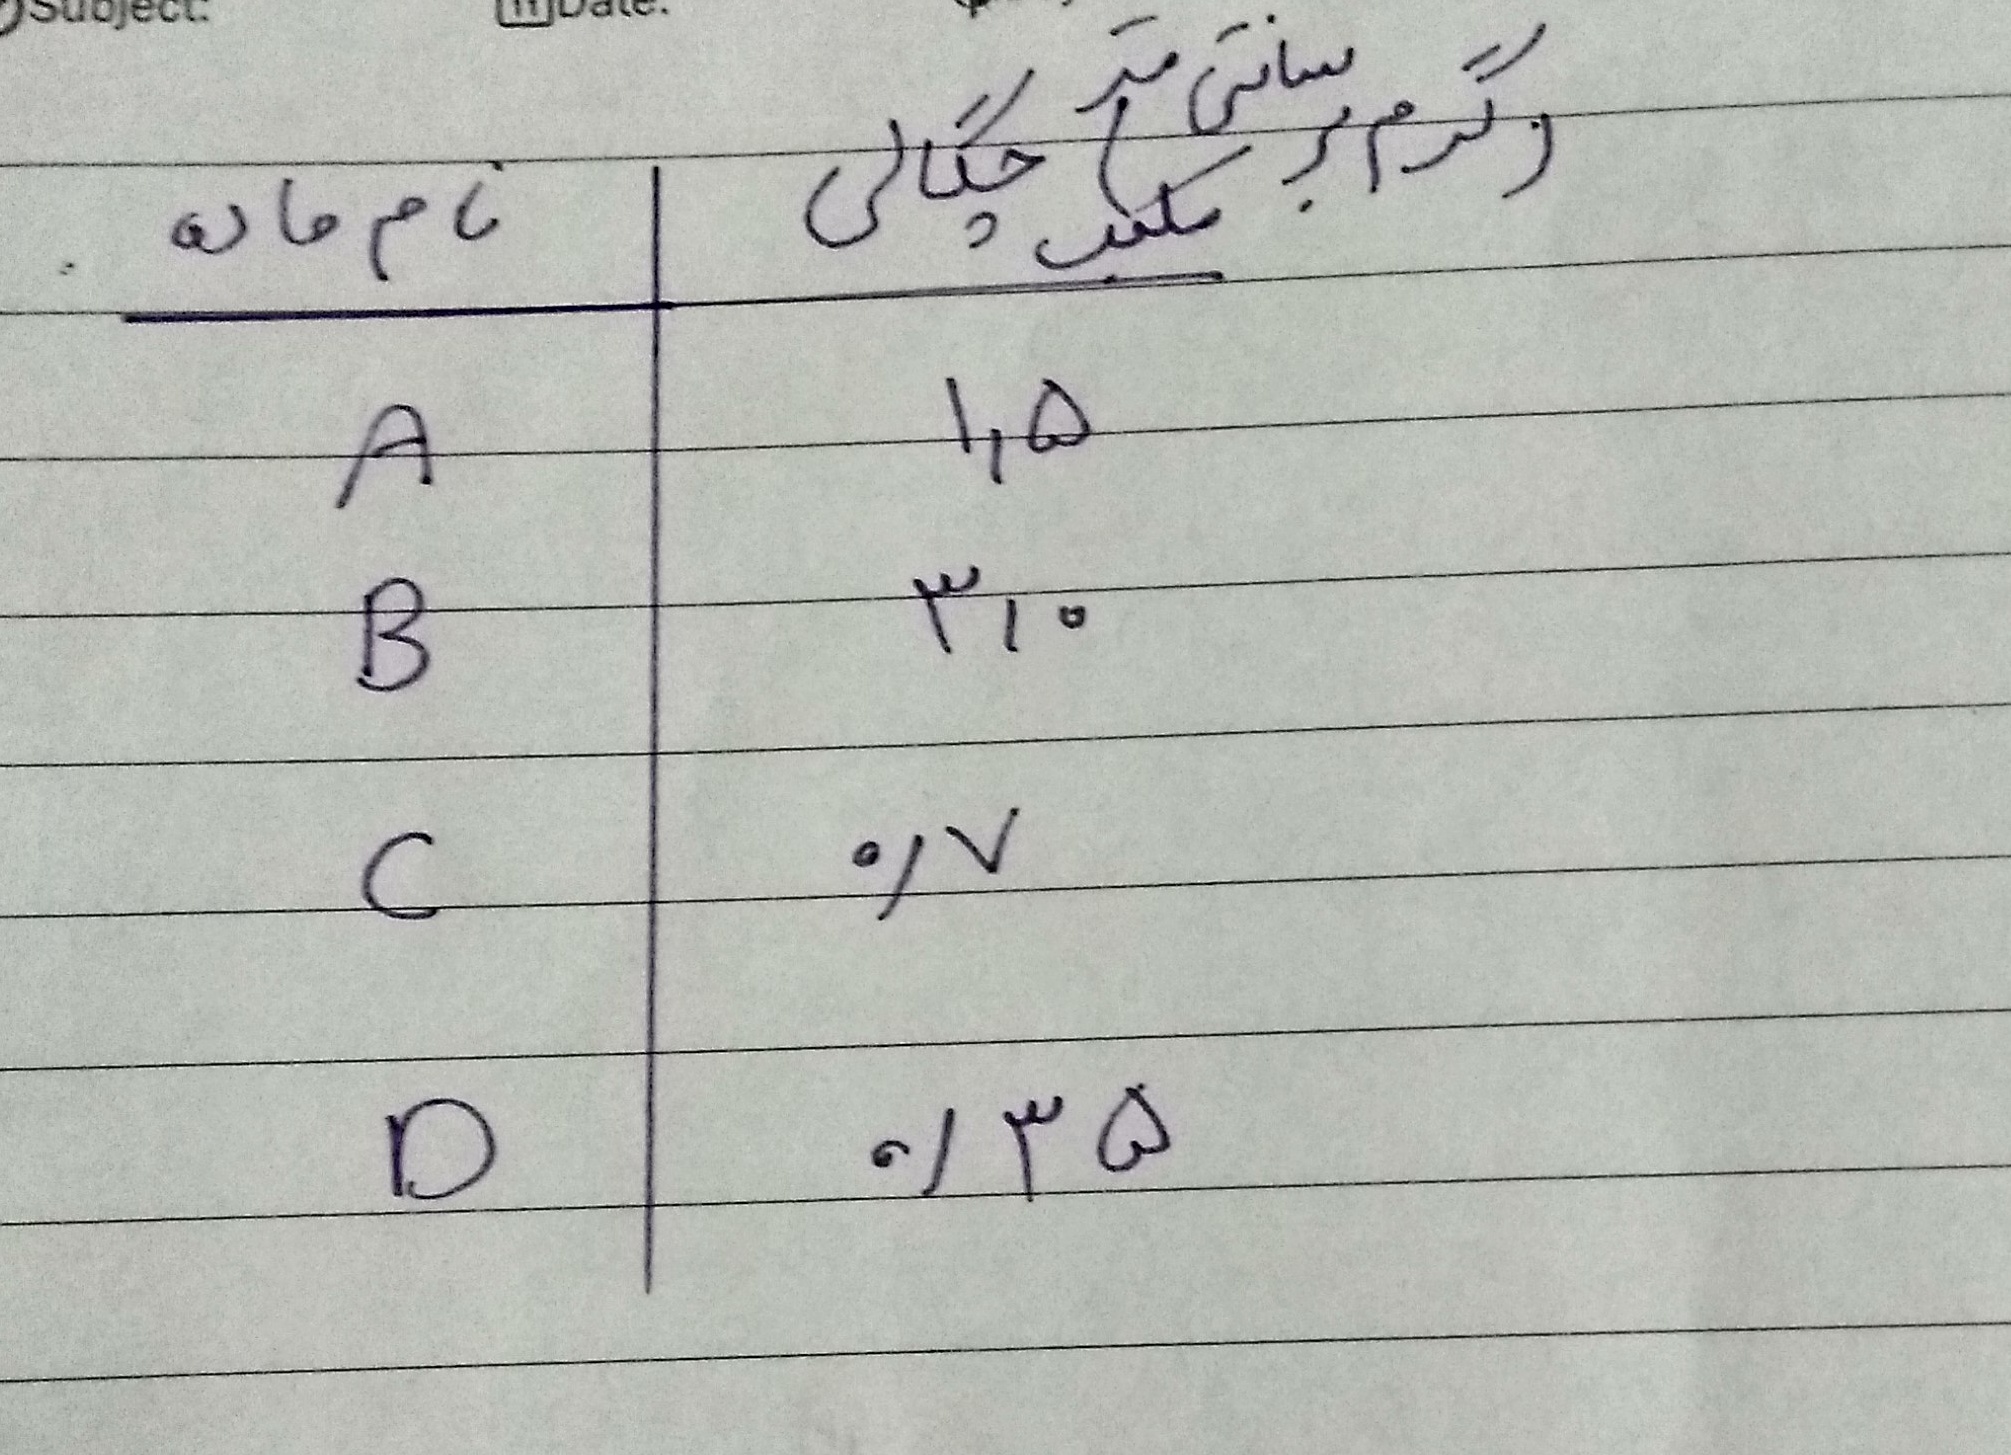 Subject: Date:
چگالی (گرم بر سانتی متر مکعب)
نام ماده
A ۱٫۵
B ۳٫۰
C ۰٫۷
D ۰٫۳۵